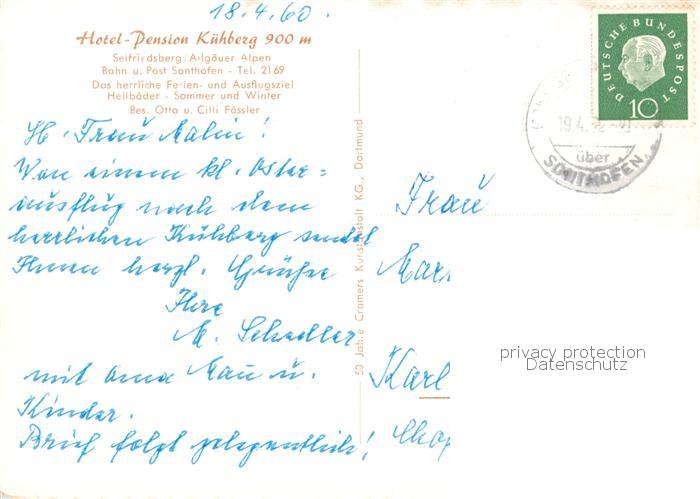 18.4.60.
Hotel-Pension Kühberg 900 m
Seifriedsberg/Allgäuer Alpen
Bahn u. Post Sonthofen - Tel. 2169
Das herrliche Ferien- und Ausflugsziel
Heilbäder - Sommer und Winter
Bes. Otto u. Cilli Fässler
DEUTSCHE BUNDESPOST
10
19.4.
über
SONTHOFEN
Frau
Von einem kl. Oster=
ausflug nach dem
herrlichen Kühberg sendet
Ihnen herzl. Grüße
Ihre
M. Schedler
mit
u.
Kinder.
Brief folgt gelegentlich!
50 Jahre Cramers Kunstanstalt KG., Dortmund
Frau
Karl
privacy protection
Datenschutz